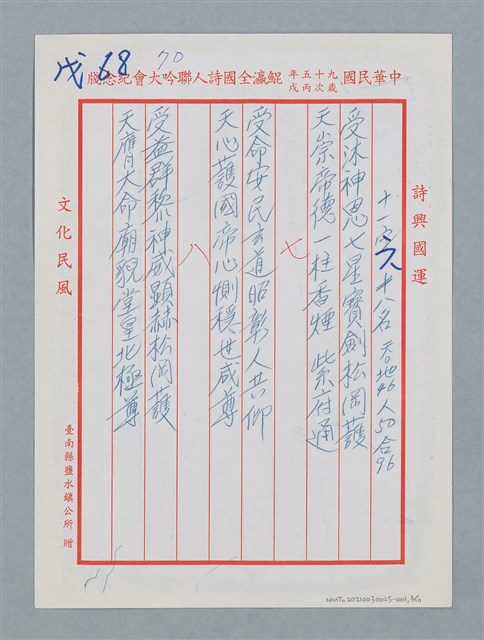 戊 68 70
中華民國九十五年歲次丙戌鯤瀛全國詩人聯吟大會紀念牋
詩興國運
十八名 天0 地46 人50 合96
受沐神恩七星寶劍松岡護
天崇帝德一柱香煙紫府通
七
受命安民玄道昭彰人共仰
天心護國帝心惻穩世咸尊
八
受益群黎神威顯赫松岡護
天膺大命廟貌堂皇北極尊
文化民風
臺南縣鹽水鎮公所 贈
NMTL20210030025-001,3/10